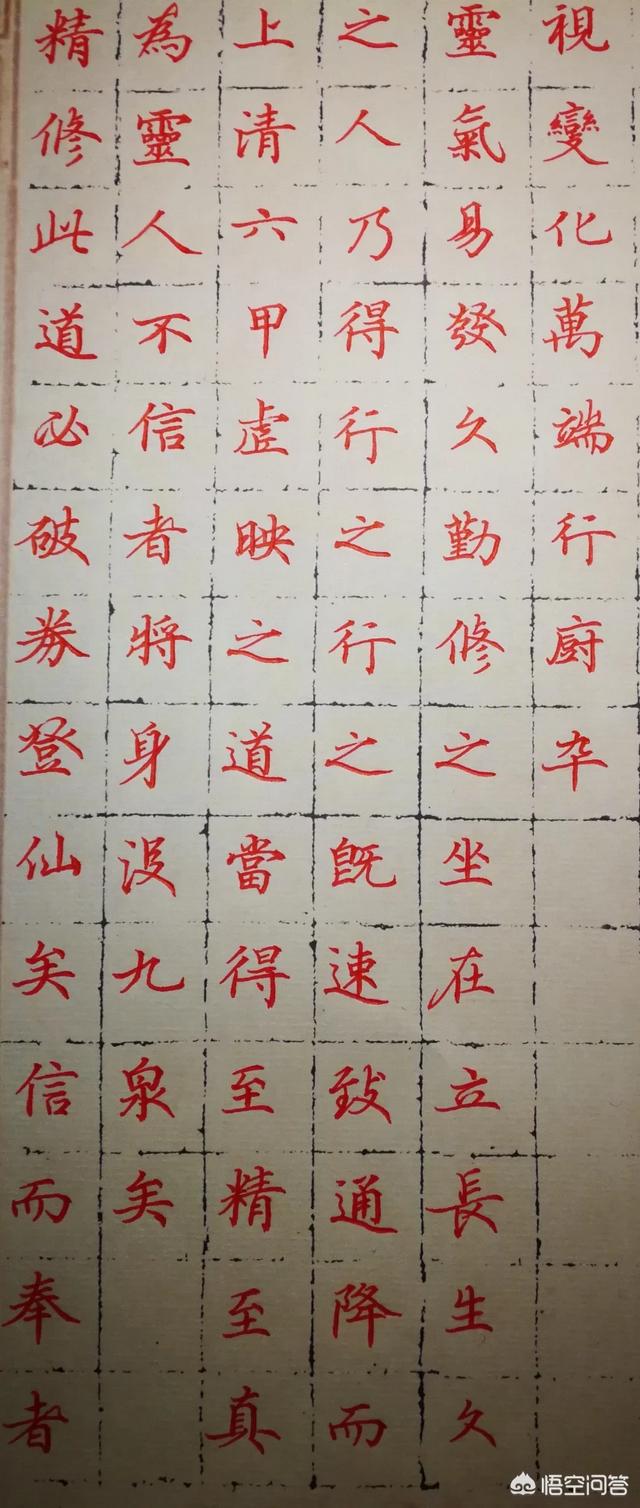 精修此道必破券登仙矣信而奉者
為靈人不信者將身沒九泉矣
上清六甲虛映之道當得至精至真
之人乃得行之行之既速致通降而
靈氣易發久勤修之坐在立長生久
視變化萬端行廚卒
悟空问答